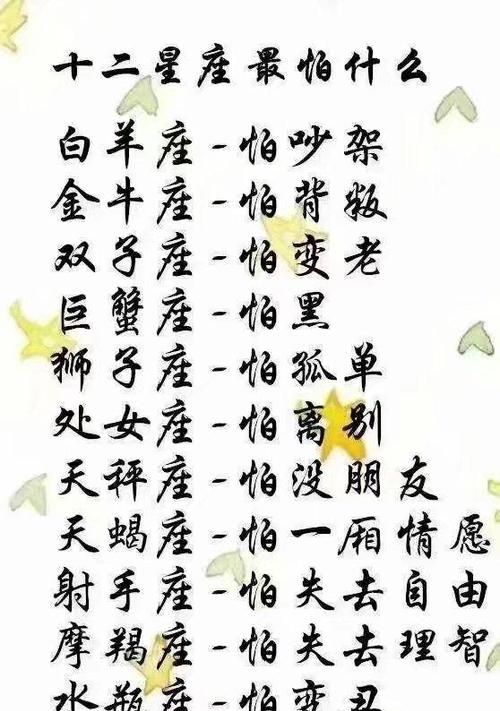 十二星座最怕什么
白羊座-怕吵架
金牛座-怕背叛
双子座-怕变老
巨蟹座-怕黑
狮子座-怕孤单
处女座-怕离别
天秤座-怕没朋友
天蝎座-怕一厢情愿
射手座-怕失去自由
摩羯座-怕失去理智
水瓶座-怕变丑